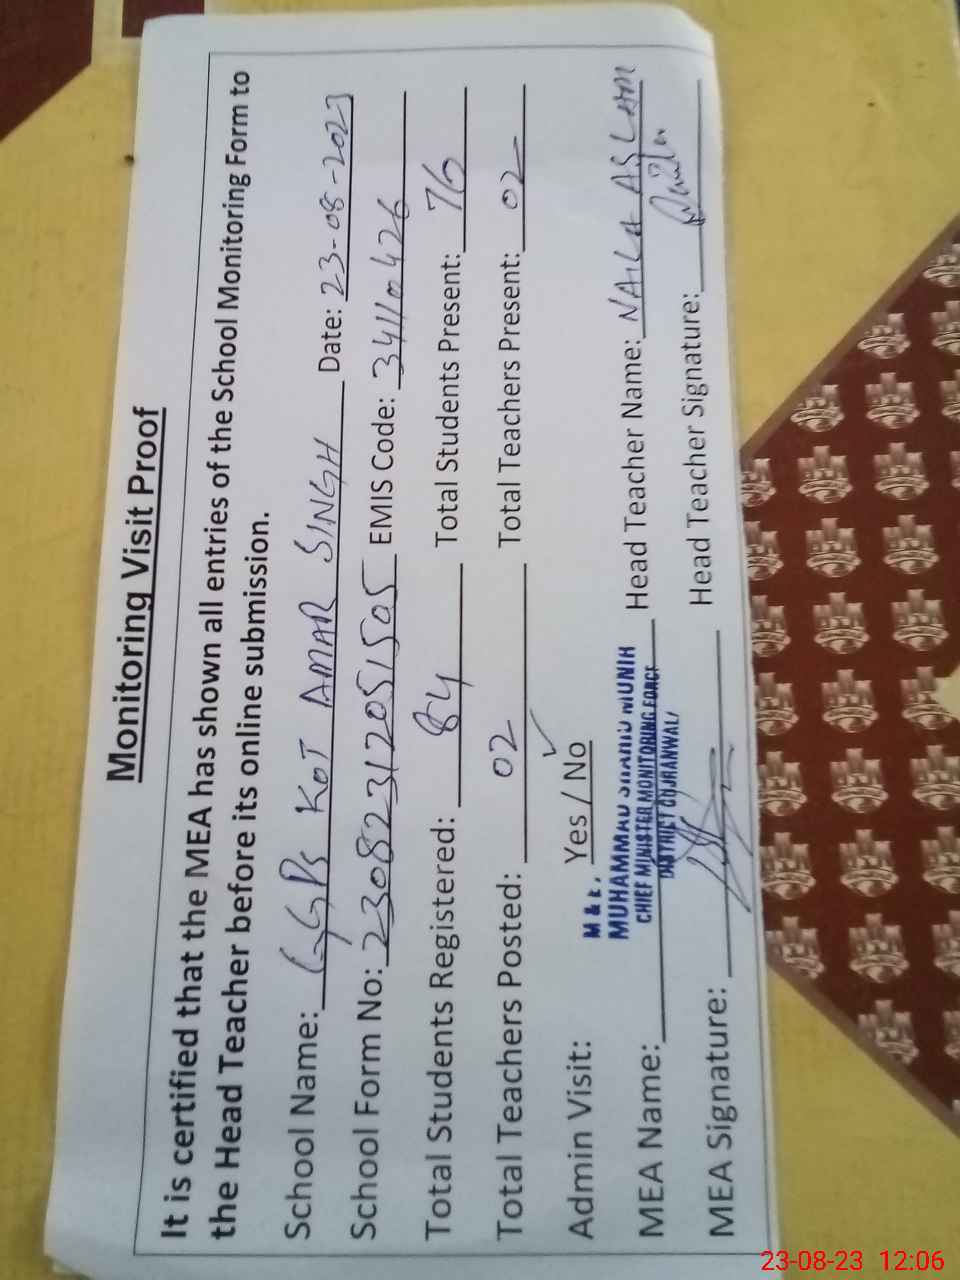 Monitoring Visit Proof
It is certified that the MEA has shown all entries of the School Monitoring Form to
the Head Teacher before its online submission.
School Name: GGPS KOT AMAR SINGH Date: 23-08-2023
School Form No: 23082312051505 EMIS Code: 34110426
Total Students Registered: 84 Total Students Present: 76
Total Teachers Posted: 02 Total Teachers Present: 02
Admin Visit: Yes / No ✓
M & E,
MUHAMMAD MUNIR
CHIEF MINISTER MONITORING FORCE
DISTRICT GUJRANWALA
MEA Name: Head Teacher Name: NAILA ASLAM
MEA Signature: Head Teacher Signature: Naila
23-08-23 12:06